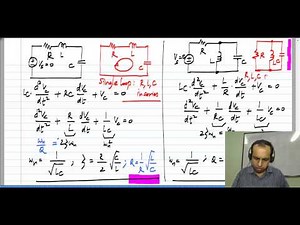 R L
V_s=0
C
R L
C
Single loop: R, L, C
in series
LC d²V_c/dt² + RC dV_c/dt + V_c = 0
d²V_c/dt² + R/L dV_c/dt + 1/LC V_c = 0
ω_0/Q = 2ζω_n
ω_n²
ω_n = 1/√LC ; ζ = R/2 √C/L ; Q = 1/R √L/C
R
L
C
R L C
R, L, C
LC d²V_c/dt² + L/R dV_c/dt + V_c = 0
d²V_c/dt² + 1/RC dV_c/dt + 1/LC V_c = 0
2ζω_n
ω_n²
ω_n = 1/√LC ;